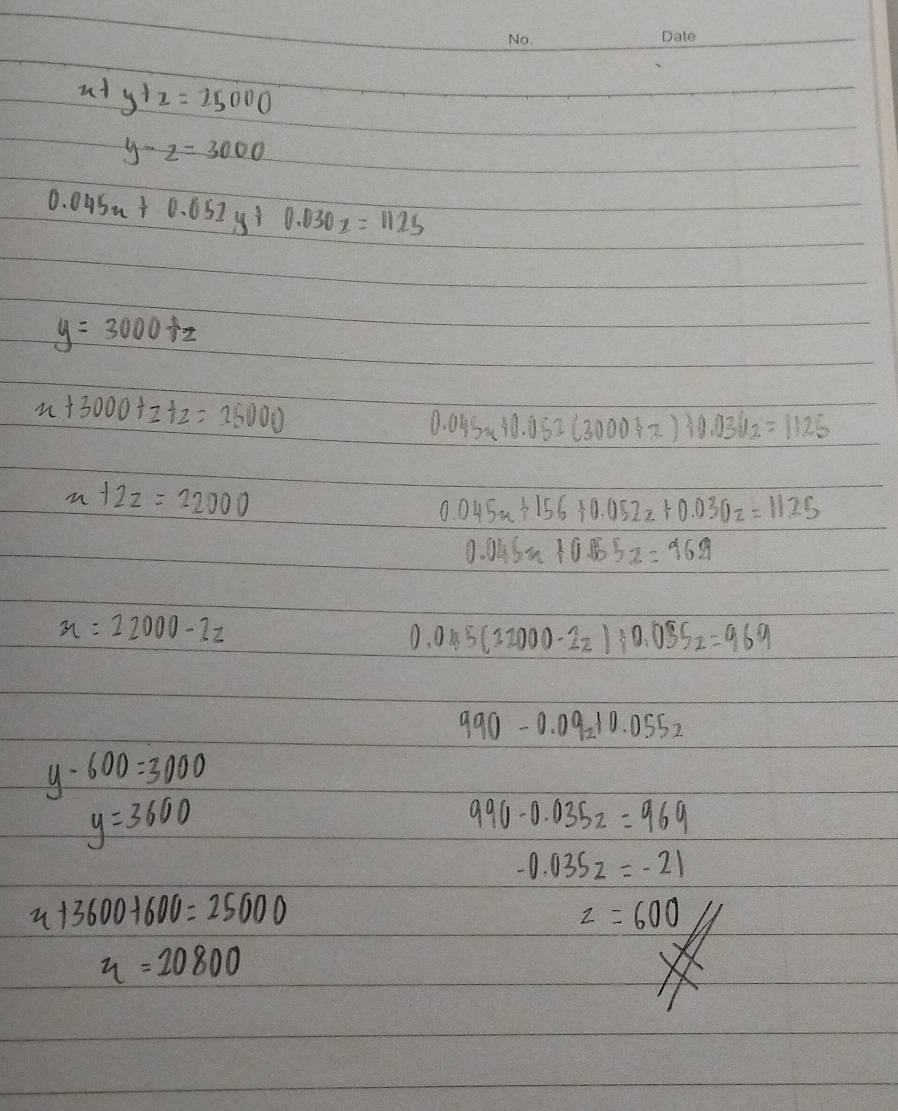 No. Date
x+y+z=25000
y-z=3000
0.045x+0.052y+0.030z=1125
y=3000+z
x+3000+z+z=25000 0.045x+0.052(3000+z)+0.030z=1125
x+2z=22000 0.045x+156+0.052z+0.030z=1125
0.045x+0.055z=969
x=22000-2z 0.045(22000-2z)+0.055z=969
990-0.09z+0.055z
y-600=3000
y=3600 990-0.035z=969
-0.035z=-21
x+3600+600=25000 z=600
x=20800